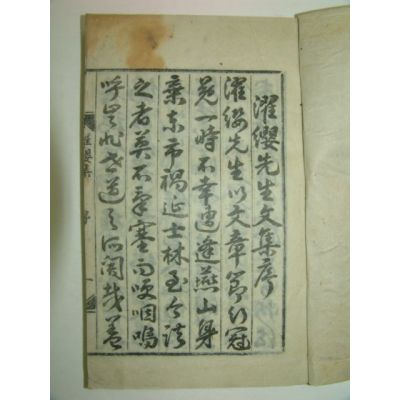 濯纓先生文集序
濯纓先生以文章節行冠
冕一時不幸遭逢燕山身
棄東市禍延士林至今談
之者莫不氣塞而哽咽嗚
呼是非世道之所關哉蓋
濯纓集 序 一